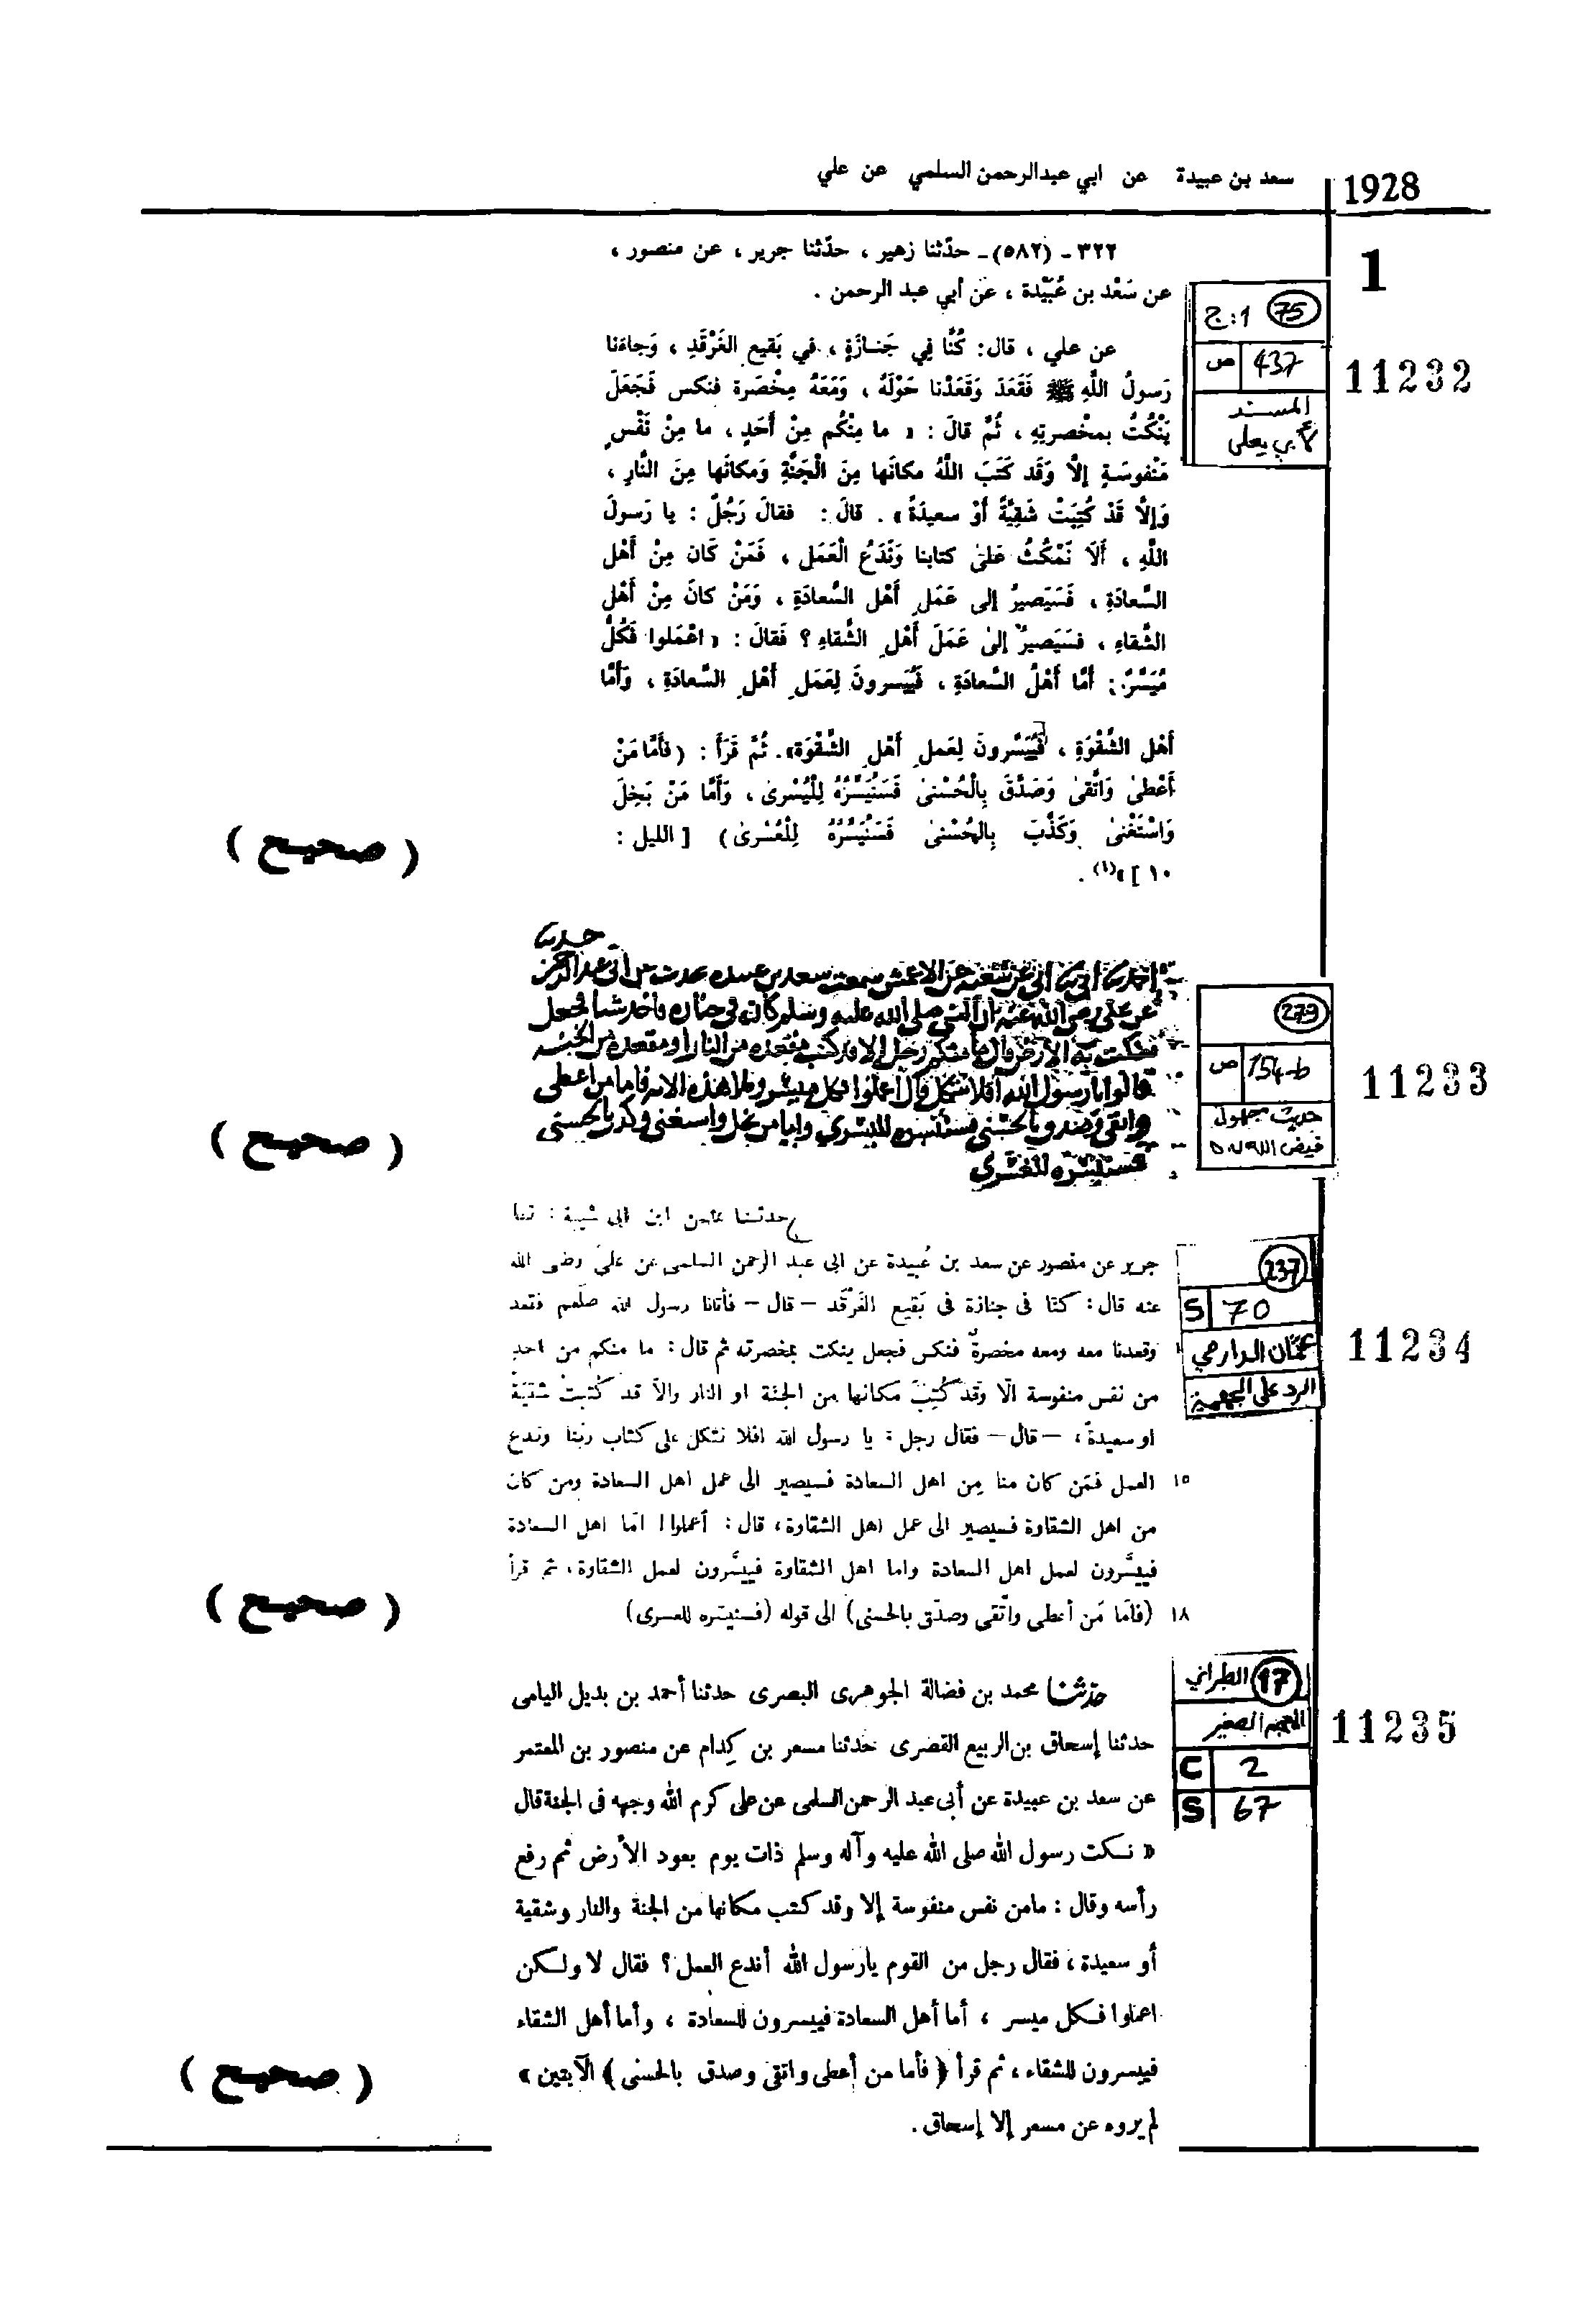 1928
سعد بن عبيدة عن ابي عبدالرحمن السلمي عن علي
1
٣٢٢- (٥٨٢)- حدّثنا زهير ، حدّثنا جرير ، عن منصور ،
عن سَعْد بن عُبَيْدة ، عن أبي عبد الرحمن .
75 ج:1
437 ص
المسند
لأبي يعلى
11232
عن علي ، قال: كُنَّا فِي جَنازَةٍ ، في بَقيع الغَرْقَدِ ، وَجاءَنا
رَسولُ اللَّهِ ﷺ فَقَعَدَ وَقَعَدْنا حَوْلَهُ ، وَمَعَهُ مِخْصَرة فنكس فَجَعَلَ
يَنْكُتُ بمخْصرتِهِ ، ثُمَّ قالَ : « ما مِنْكُم مِنْ أَحَدٍ ، ما مِنْ نَفْسٍ
مَنْفوسَةٍ إلَّا وَقَد كَتَبَ اللَّهُ مكانَها مِنَ الْجَنَّةِ وَمكانَها مِنَ النَّارِ ،
وَإلَّا قَدْ كُتِبَتْ شَقِيَّةً أَوْ سعيدَةً» . قالَ : فقالَ رَجُلٌ : يا رَسولَ
اللَّهِ ، أَلَا نَمْكُثُ عَلىٰ كتابنا وَنَدَعُ الْعَمَل ، فَمَنْ كَان مِنْ أَهْل
السَّعادَةِ ، فَسَيَصيرُ إلى عَمَلِ أَهْل السَّعادَةِ ، وَمَنْ كانَ مِنْ أَهْل
الشَّقاءِ ، فسَيَصيرُ إلىٰ عَمَلَ أَهْلِ الشَّقاءِ ؟ فَقالَ : « اعْمَلوا فَكُلٌّ
مُيَسَّرٌ: أَمَّا أَهْلُ السَّعادَةِ ، فَيُيَسرونَ لِعَمَلِ أَهْلِ السَّعادَةِ ، وَأَمَّا
أَهْل الشَّقْوَةِ ، فَيُيَسَّرونَ لِعَملِ أَهْلِ الشَّقْوَة». ثُمَّ قَرَأَ : (فَأَمَّا مَنْ
أَعْطىٰ وَاتَّقىٰ وَصَدَّقَ بِالْحُسْنىٰ فَسَنُيَسِّرُهُ لِلْيُسْرىٰ ، وَأَمَّا مَنْ بَخِلَ
وَاسْتَغْنىٰ وَكَذَّبَ بِالحُسْنىٰ فَسَنُيَسِّرُهُ لِلْعُسْرىٰ) [ الليل :
١٠ ]»(١) .
( صحيح )
279
154-b ص
حديث مجهول
فيض الله ٥٠٧
11233
عن علي رضي الله عنه ان النبي صلى الله عليه وسلم كان في جنازه فاخذ شيا فجعل
قالوا يا رسول الله افلا نتكل قال اعملوا فكل ميسر وقرا هذه الايه فاما من اعطى
واتقى وصدق بالحسنى فسنيسره لليسري واما من بخل واستغنى وكذب بالحسنى
فسنيسره للعسري
( صحيح )
حدثنا عثمن ابن ابى شيبة : ثنا
237
S 70
عثمان الدارمي
الرد على الجهمية
11234
جرير عن منصور عن سعد بن عُبيدة عن ابى عبد الرحمن السلمى عن علىّ رضى الله
عنه قال : كنّا فى جنازة فى بَقيع الغَرْقَد – قال – فأتانا رسول الله صلّعم فقعد
وقعدنا معه ومعه مخصرةٌ فنكس فجعل ينكت بمخصرته ثم قال : ما منكم من احدٍ
من نفس منفوسة الّا وقد كُتِبَ مكانها من الجنة او النار والّا قد كُتبتْ شقيّةً
او سعيدةً ، – قال – فقال رجل : يا رسول الله افلا نتكل على كتاب ربّنا وندع
١٥ العمل فمَن كان منا مِن اهل السعادة فسيصير الى عمل اهل السعادة ومن كان
من اهل الشقاوة فسيصير الى عمل اهل الشقاوة، قال : أعملوا ا امّا اهل السعادة
فييسَّرون لعمل اهل السعادة واما اهل الشقاوة فييسَّرون لعمل الشقاوة، ثم قرأ
١٨ (فأمّا مَن أعطى واتّقى وصدّق بالحسنى) الى قوله (فسنيسّره للعسرى)
( صحيح )
17 الطبراني
المعجم الصغير
C 2
S 67
11235
حدثنا محمد بن فضالة الجوهرى البصرى حدثنا أحمد بن بديل اليامى
حدثنا إسحاق بن الربيع القصرى حدثنا مسعر بن كِدام عن منصور بن المعتمر
عن سعد بن عبيدة عن أبى عبد الرحمن السلمى عن على كرم الله وجهه فى الجنة قال
« نكت رسول الله صلى الله عليه وآله وسلم ذات يوم بعود الأرض ثم رفع
رأسه وقال : مامن نفس منفوسة إلا وقد كتب مكانها من الجنة والنار وشقية
أو سعيدة ، فقال رجل من القوم يارسول الله أندع العمل ؟ فقال لا ولكن
اعملوا فكل ميسر ، أما أهل السعادة فييسرون للسعادة ، وأما أهل الشقاء
فييسرون للشقاء ، ثم قرأ ( فأما من أعطى واتقى وصدق بالحسنى ) الآيتين »
لم يروه عن مسعر إلا إسحاق .
( صحيح )